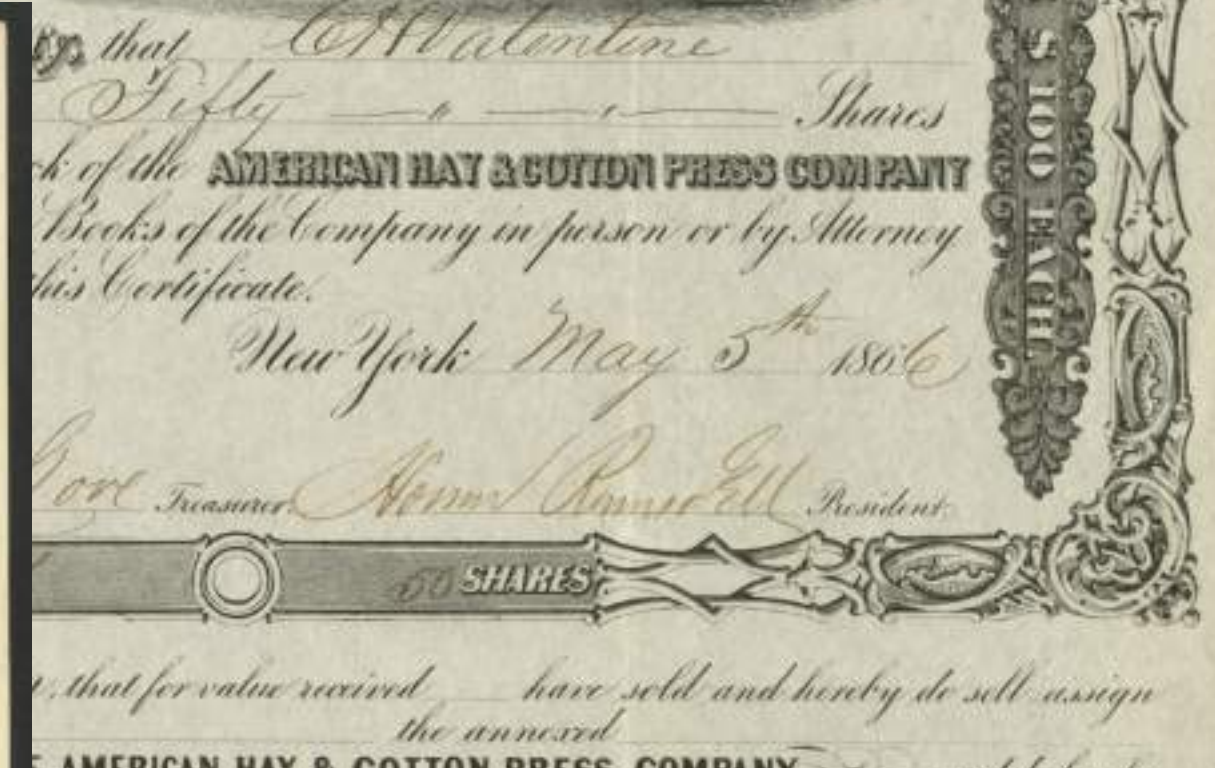 that C H Valentine
Fifty — " — " — Shares
of the AMERICAN HAY & COTTON PRESS COMPANY
Books of the Company in person or by Attorney
this Certificate.
New York May 5th 1866
Treasurer. President.
50 SHARES
that for value received have sold and hereby do sell assign
the annexed
AMERICAN HAY & COTTON PRESS COMPANY
S 100 EACH